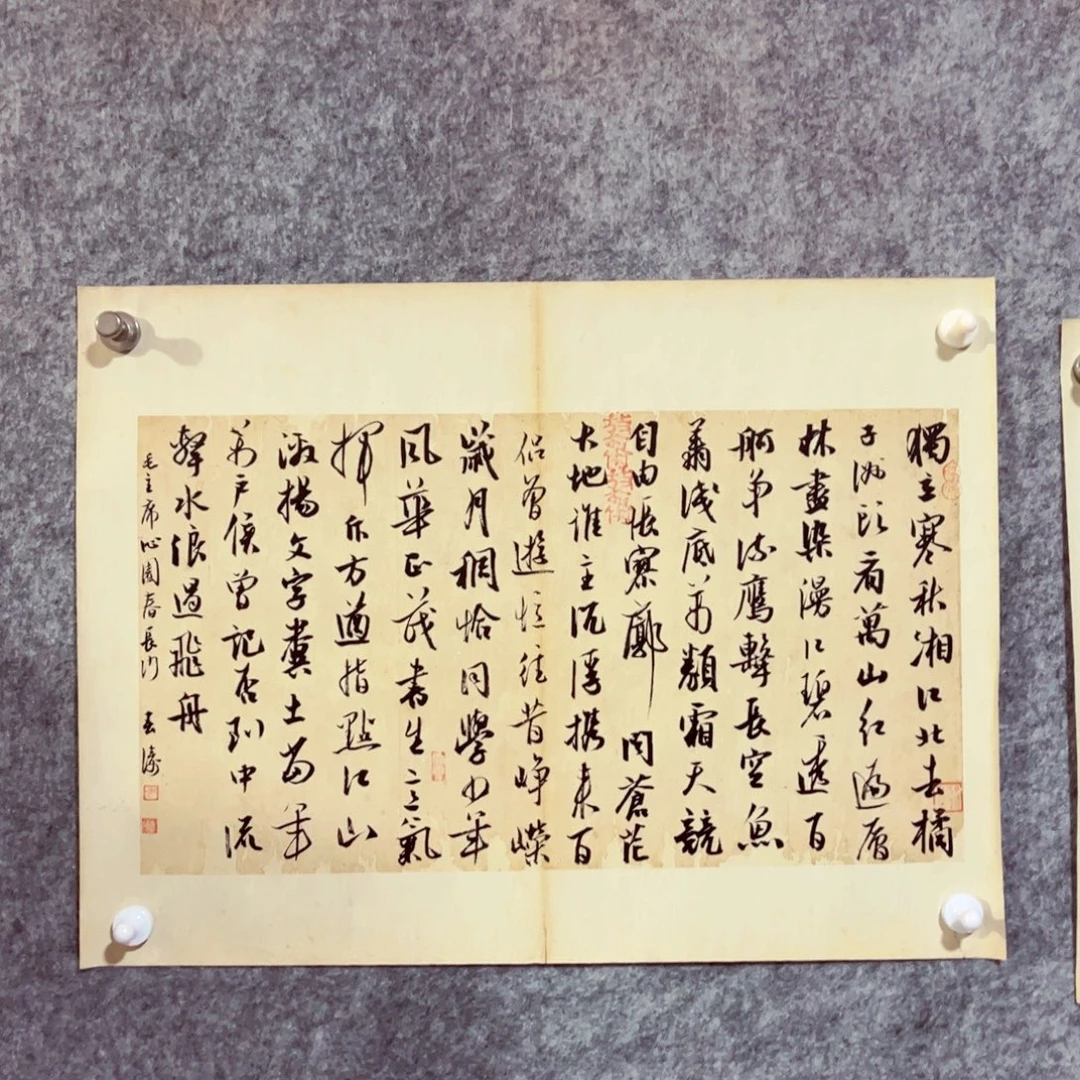 獨立寒秋湘江北去橘
子洲頭看萬山紅遍層
林盡染漫江碧透百
舸争流鷹擊長空魚
翔淺底萬類霜天競
自由悵寥廓問蒼茫
大地誰主沉浮携來百
侣曾遊憶往昔崢嶸
歲月稠恰同學少年
風華正茂書生意氣
揮斥方遒指點江山
激揚文字糞土當年
萬户侯曾記否到中流
擊水浪遏飛舟
毛主席沁園春長沙